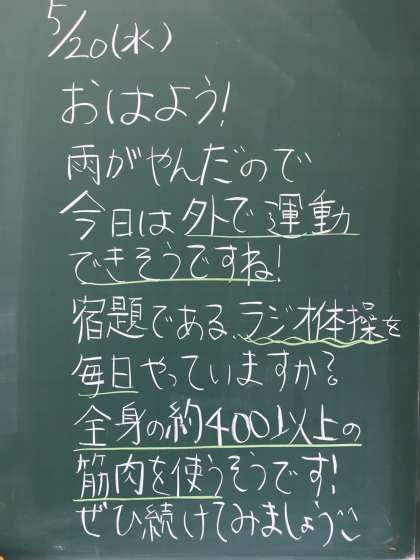 5/20(水)
おはよう!
雨がやんだので
今日は外で運動
できそうですね!
宿題である、ラジオ体操を
毎日やっていますか?
全身の約400以上の
筋肉を使うそうです!
ぜひ続けてみましょう